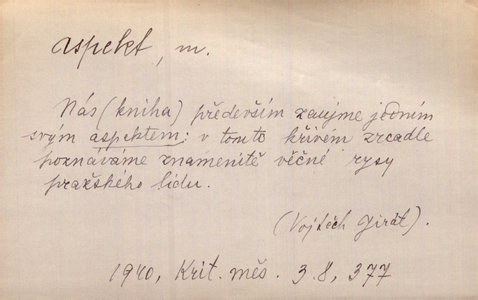 aspekt, m.
Nás (kniha) především zaujme jedním
svým aspektem: v tomto křivém zrcadle
poznáváme znamenitě věčné rysy
pražského lidu.
(Vojtěch Jirát).
1940, Krit. měs. 3.8, 377